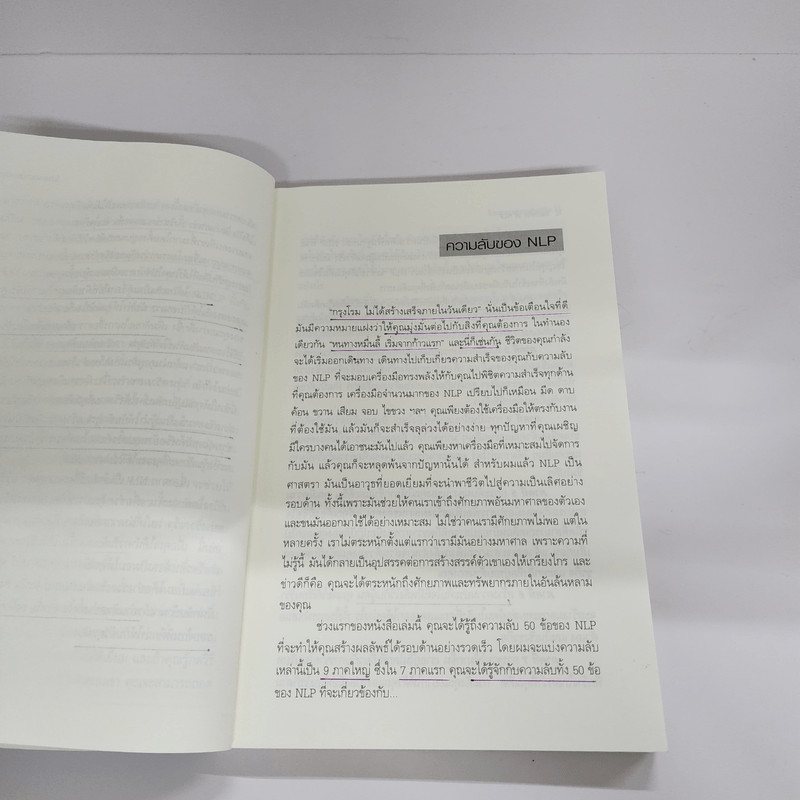 ความลับของ NLP
"กรุงโรม ไม่ได้สร้างเสร็จภายในวันเดียว" นั่นเป็นข้อเตือนใจที่ดี
มันมีความหมายแฝงว่าให้คุณมุ่งมั่นต่อไปกับสิ่งที่คุณต้องการ ในทำนอง
เดียวกัน "หนทางหมื่นลี้ เริ่มจากก้าวแรก" และนี่ก็เช่นกัน ชีวิตของคุณกำลัง
จะได้เริ่มออกเดินทาง เดินทางไปเก็บเกี่ยวความสำเร็จของคุณกับความลับ
ของ NLP ที่จะมอบเครื่องมือทรงพลังให้กับคุณไปพิชิตความสำเร็จทุกด้าน
ที่คุณต้องการ เครื่องมือจำนวนมากของ NLP เปรียบไปก็เหมือน มีด ดาบ
ค้อน ขวาน เสียม จอบ ไขขวง ฯลฯ คุณเพียงต้องใช้เครื่องมือให้ตรงกับงาน
ที่ต้องใช้มัน แล้วมันก็จะสำเร็จลุล่วงได้อย่างง่าย ทุกปัญหาที่คุณเผชิญ
มีใครบางคนได้เอาชนะมันไปแล้ว คุณเพียงหาเครื่องมือที่เหมาะสมไปจัดการ
กับมัน แล้วคุณก็จะหลุดพ้นจากปัญหานั้นได้ สำหรับผมแล้ว NLP เป็น
ศาสตรา มันเป็นอาวุธที่ยอดเยี่ยมที่จะนำพาชีวิตไปสู่ความเป็นเลิศอย่าง
รอบด้าน ทั้งนี้เพราะมันช่วยให้คนเราเข้าถึงศักยภาพอันมหาศาลของตัวเอง
และขนมันออกมาใช้ได้อย่างเหมาะสม ไม่ใช่ว่าคนเรามีศักยภาพไม่พอ แต่ใน
หลายครั้ง เราไม่ตระหนักตั้งแต่แรกว่าเรามีมันอย่างมหาศาล เพราะความที่
ไม่รู้นี้ มันได้กลายเป็นอุปสรรคต่อการสร้างสรรค์ตัวเขาเองให้เกรียงไกร และ
ข่าวดีก็คือ คุณจะได้ตระหนักถึงศักยภาพและทรัพยากรภายในอันล้นหลาม
ของคุณ
ช่วงแรกของหนังสือเล่มนี้ คุณจะได้รู้ถึงความลับ 50 ข้อของ NLP
ที่จะทำให้คุณสร้างผลลัพธ์ได้รอบด้านอย่างรวดเร็ว โดยผมจะแบ่งความลับ
เหล่านี้เป็น 9 ภาคใหญ่ ซึ่งใน 7 ภาคแรก คุณจะได้รู้จักกับความลับทั้ง 50 ข้อ
ของ NLP ที่จะเกี่ยวข้องกับ...